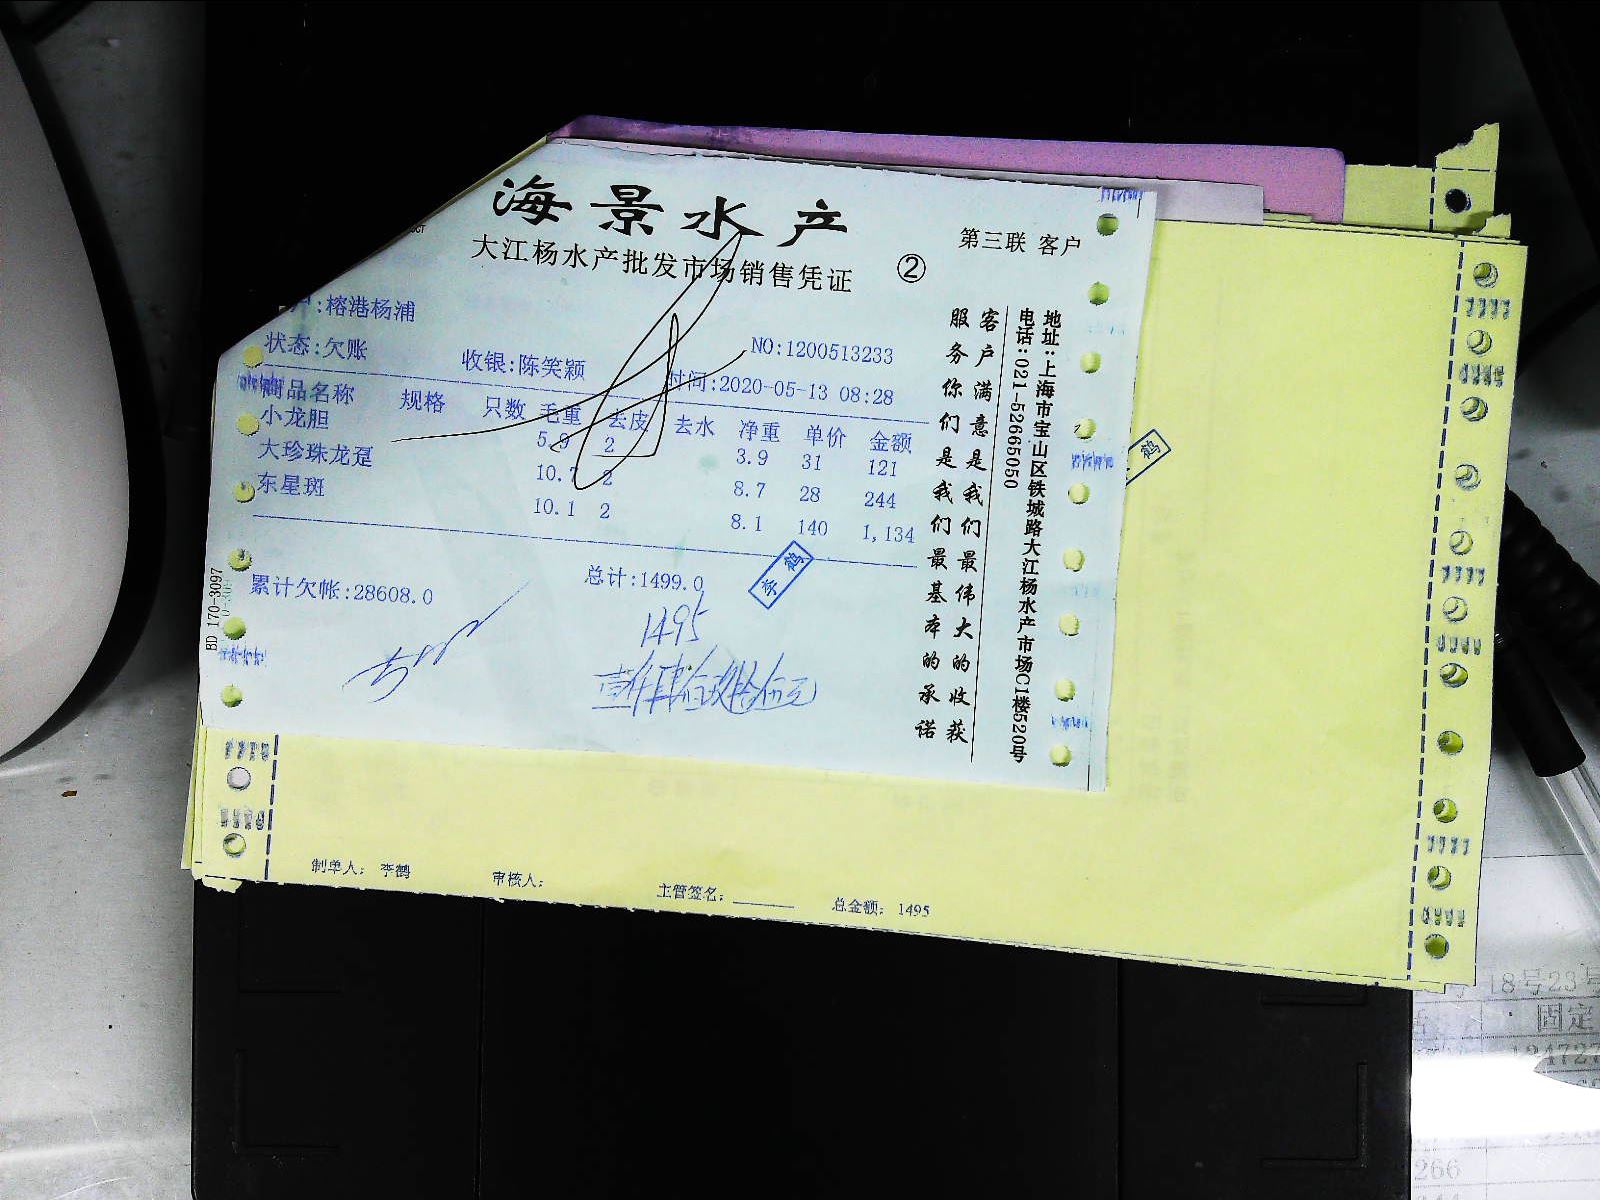 海景水产
大江杨水产批发市场销售凭证
②
第三联 客户
户:榕港杨浦
状态:欠账
收银:陈笑颖
NO:1200513233
时间:2020-05-13 08:28
商品名称 规格 只数 毛重 去皮 去水 净重 单价 金额
小龙胆 5.9 2 3.9 31 121
大珍珠龙趸 10.7 2 8.7 28 244
东星斑 10.1 2 8.1 140 1,134
累计欠帐:28608.0
总计:1499.0
李鹤
1495
壹仟肆佰玖拾伍元
客户满意是我们最伟大的收获
服务你们是我们最基本的承诺
地址:上海市宝山区铁城路大江杨水产市场C1楼520号
电话:021-52665050
BD 170-3097
鹤
制单人: 李鹤
审核人:
主管签名:
总金额: 1495
18号23号
固定
266